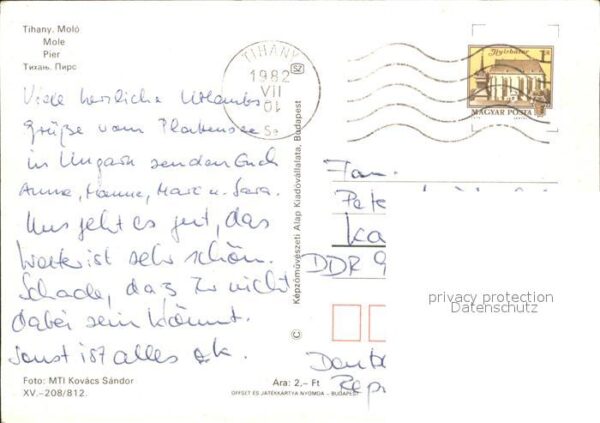 Tihany. Moló
Mole
Pier
Тихань. Пирс
TIHANY
1982
VII
01
Nyírbátor
MAGYAR POSTA
Viele herzliche Urlaubs
grüße vom Plattensee
in Ungarn senden Euch
Anna, Hanna, Marc u. Sara.
Uns geht es gut, das
Wetter ist sehr schön.
Schade, daß Ihr nicht
dabei sein könnt.
Sonst ist alles ok.
Képzőművészeti Alap Kiadóvállalata, Budapest
©
Fam.
Pete
Ka
DDR 9
privacy protection
Datenschutz
Deut
Rep
Foto: MTI Kovács Sándor
XV.–208/812.
Ára: 2,– Ft
OFFSET ÉS JÁTÉKKÁRTYA NYOMDA - BUDAPEST